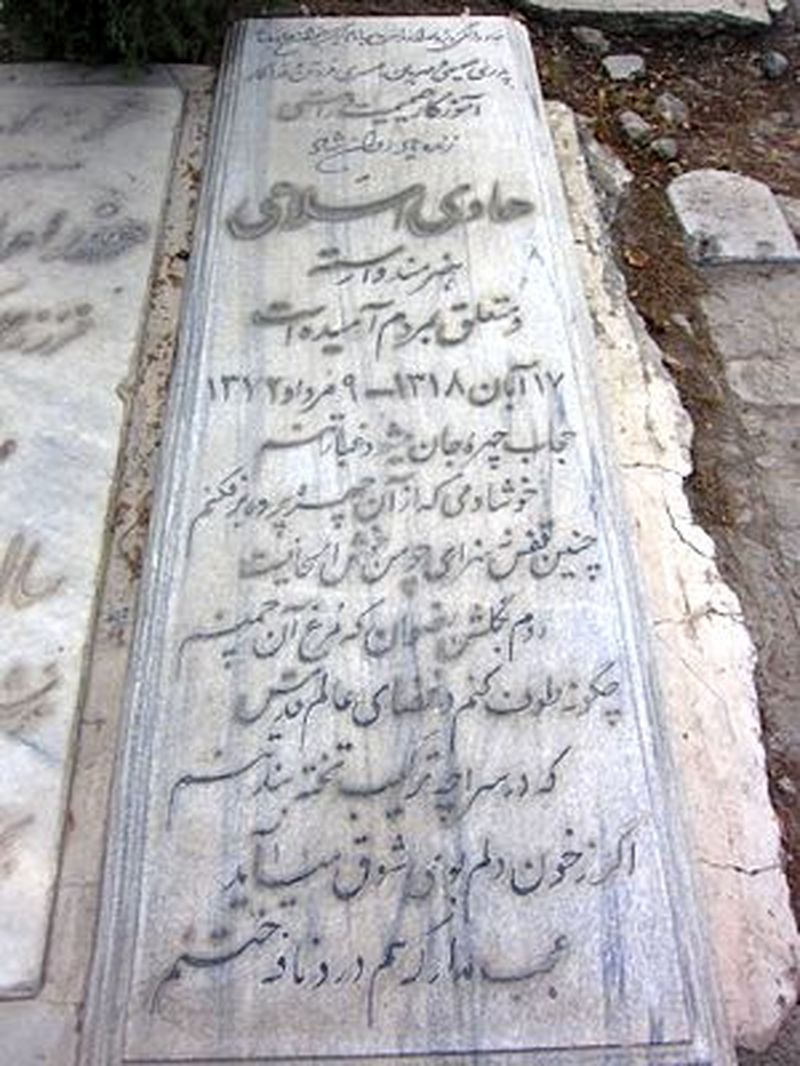 پدری صمیمی مهربان، همسری فروتن و فداکار
آموزگار صمیمیت و راستی
زنده یاد روان شاد
هادی اسلامی
هنرمند وارسته
و متعلق بمردم آرمیده است
۱۷ آبان ۱۳۱۸ - ۹ مرداد ۱۳۷۲
حجاب چهره جان میشود غبار تنم
خوشا دمی که از آن چهره پرده برفکنم
چنین قفس نه سزای چو من خوش الحانیست
روم بگلشن رضوان که مرغ آن چمنم
چگونه طوف کنم در فضای عالم قدس
که در سراچه ترکیب تخته بند تنم
اگر ز خون دلم بوی شوق میآید
عجب مدار که هم درد نافه ختنم